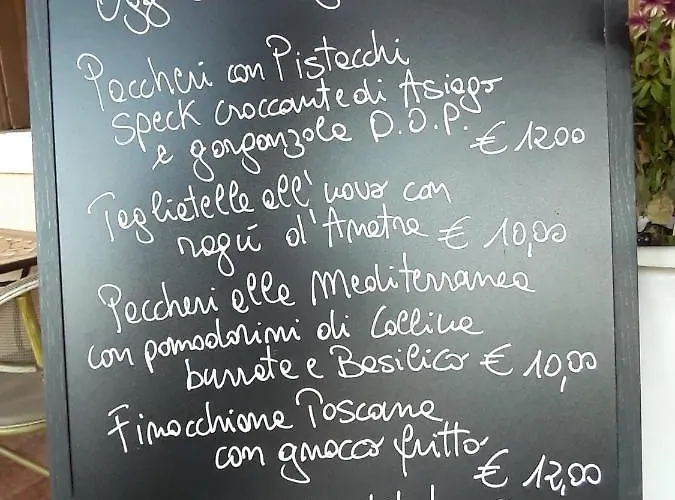 Oggi
Paccheri con Pistacchi
speck croccante di Asiago
e gorgonzola D.O.P. € 1200
Tagliatelle all'uovo con
ragù d'Anatra € 10,00
Paccheri alla Mediterranea
con pomodorini di Collina
burrata e Basilico € 10,00
Finocchiona Toscana
con gnocco fritto
€ 12,00